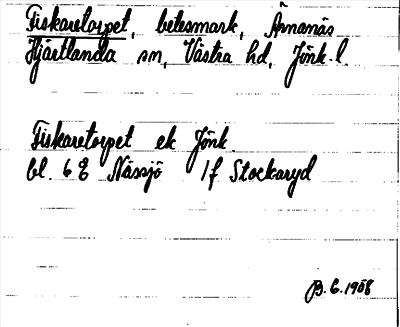 Fiskaretorpet, betesmark, Ärnanäs
Hjärtlanda sn, Västra hd, Jönk. l.
Fiskaretorpet ek Jönk.
bl. 6 E Nässjö 1f Stockaryd
B. E. 1958